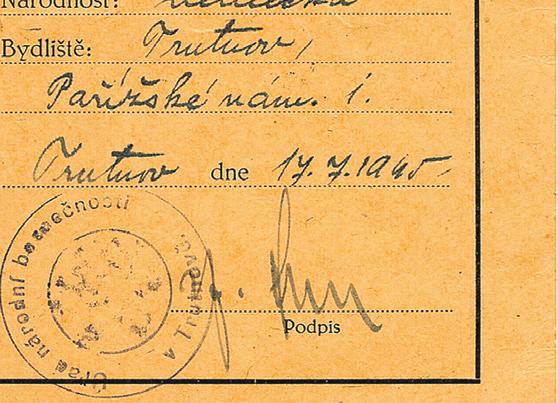 Národnost: německá
Bydliště: Trutnov,
Pařížské nám. 1.
Trutnov dne 17. 7. 1945
Úřad národní bezpečnosti
v Trutnově
Podpis